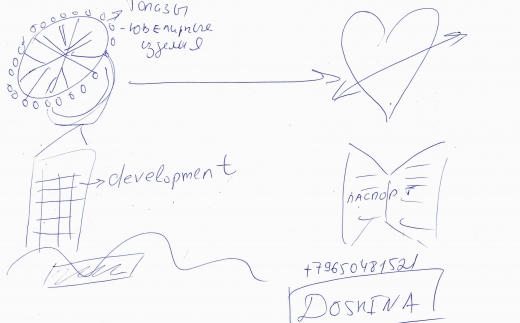 Топазы
-Ювелирные
изделия
development
ПАСПОРТ
+79650481521
DOSHINA